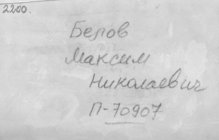 2200.
Белов
Максим
Николаевич
П-70907